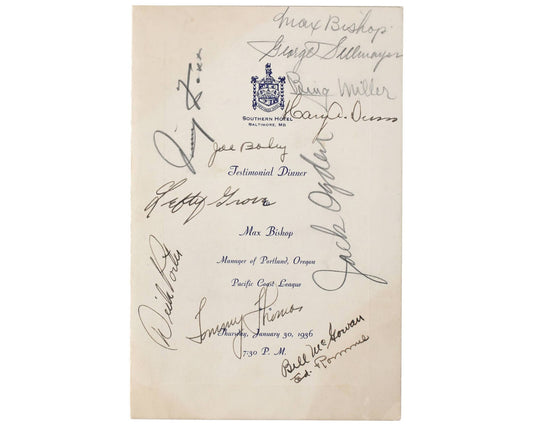 Max Bishop
George Sellmayer
Bing Miller
SOUTHERN HOTEL
BALTIMORE, MD
Harry A.
Jimmy Foxx
Joe Boley
Testimonial Dinner
Jack Ogden
Lefty Grove
Max Bishop
Manager of Portland, Oregon
Pacific Coast League
Dick Porter
Tommy Thomas
Thursday, January 30, 1936
7:30 P. M.
Bill McGowan
Ed. Rommel